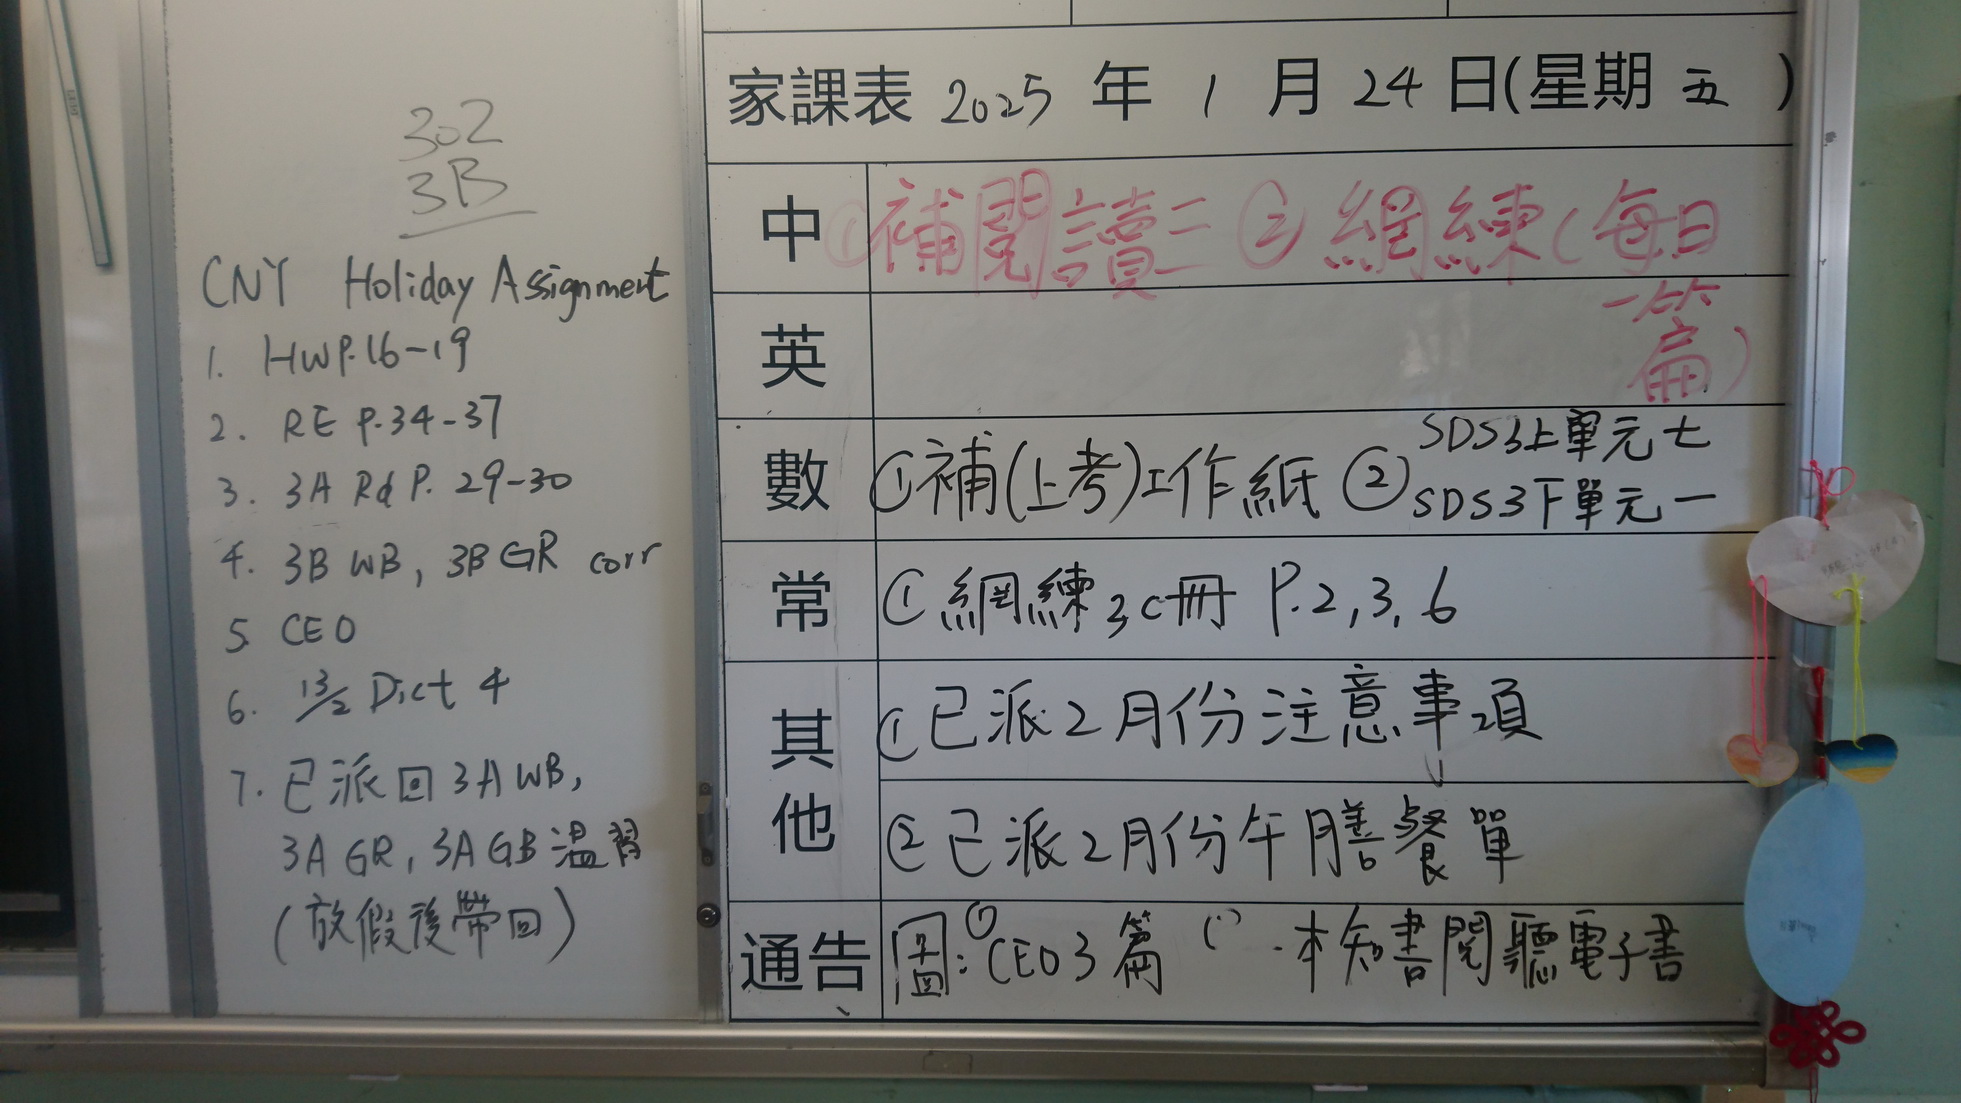 302
3B
CNY Holiday Assignment
1. HW P.16-19
2. RE P.34-37
3. 3A Rd P. 29-30
4. 3B WB, 3B GR corr
5 CEO
6. 13/2 Dict 4
7. 已派回 3A WB,
3A GR, 3A GB 溫習
(放假後帶回)
家課表 2025 年 1 月 24 日(星期 五 )
中 ①補閱讀三 ② 網練(每日
一篇)
英
數 ①補(上考)工作紙 ② SDS3上單元七
SDS3下單元一
常 ① 網練 3C冊 P.2,3,6
其他 ①已派2月份注意事項
②已派2月份午膳餐單
通告 圖:①CEO 3篇 本知書閱聽電子書